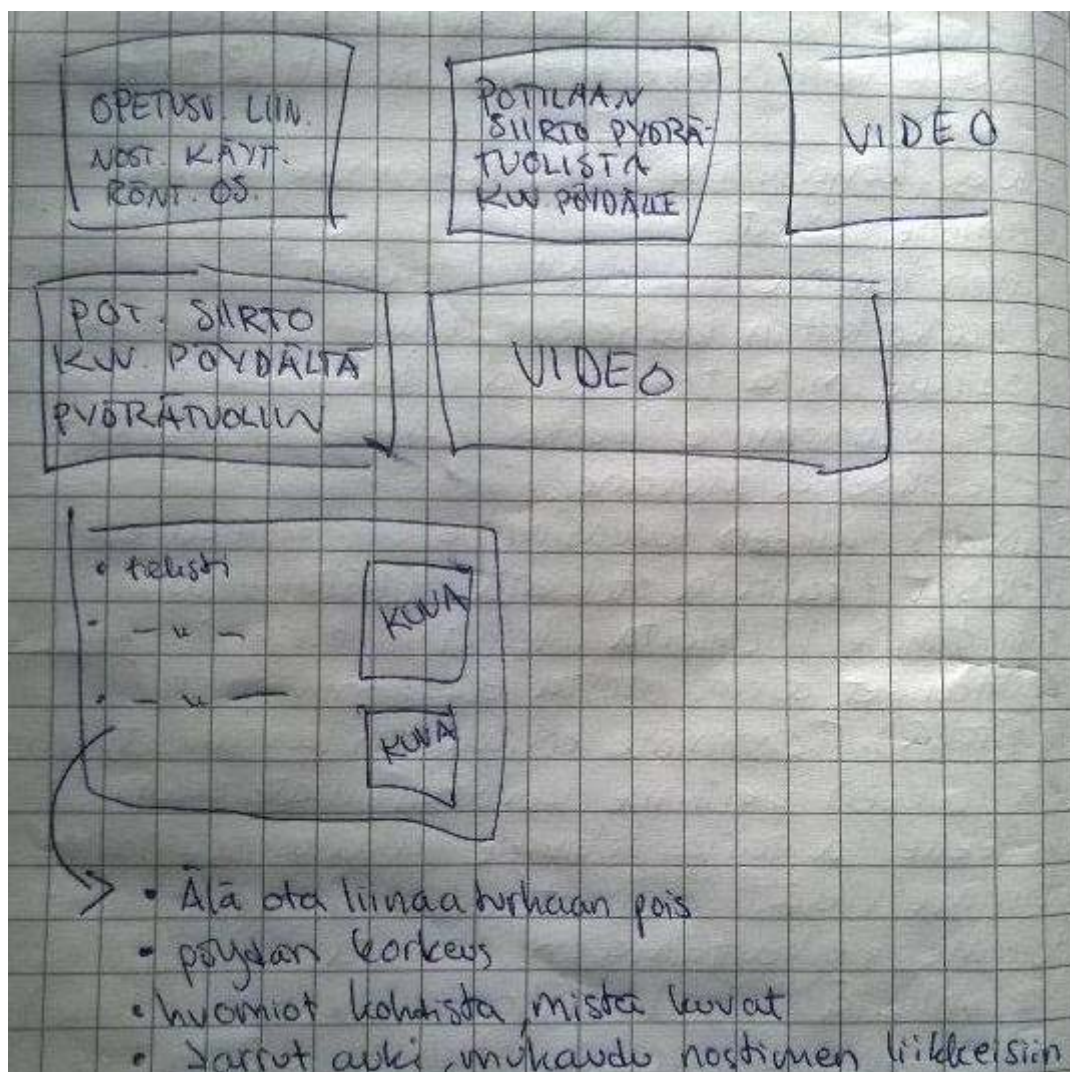 OPETUSV. LIIN.
NOST. KÄYT.
RÖNT. OS.
POTILAAN
SIIRTO PYÖRÄ-
TUOLISTA
KUV. PÖYDÄLLE
VIDEO
POT. SIIRTO
KUV. PÖYDÄLTÄ
PYÖRÄTUOLIIN
VIDEO
• teksti
• - " -
• - " -
KUVA
KUVA
• Älä ota liinaa turhaan pois
• pöydän korkeus
• huomiot kohdista, mistä kuvat
• Jarrut auki, mukaudu nostimen liikkeisiin